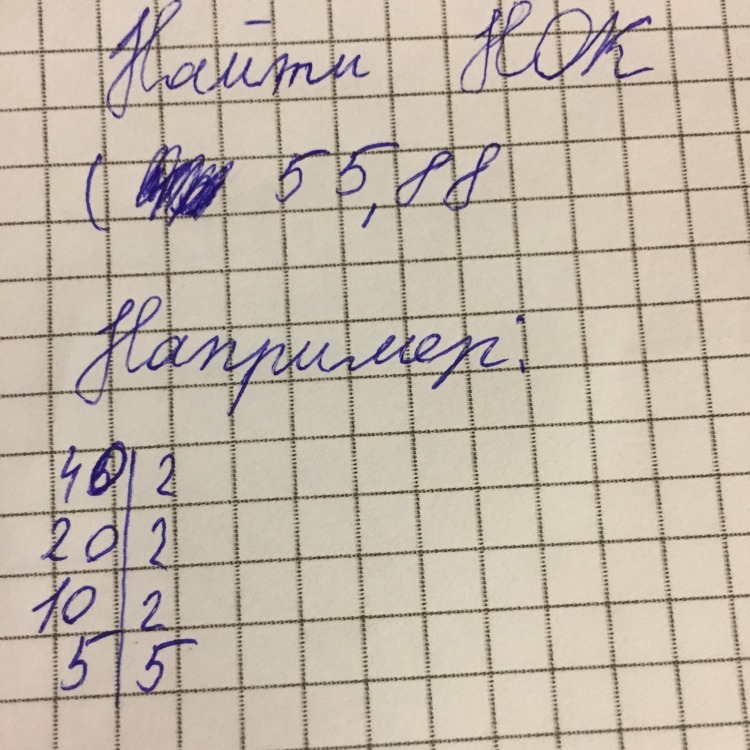 Найти НОК
( 55,88
Например:
40 | 2
20 | 2
10 | 2
5 | 5